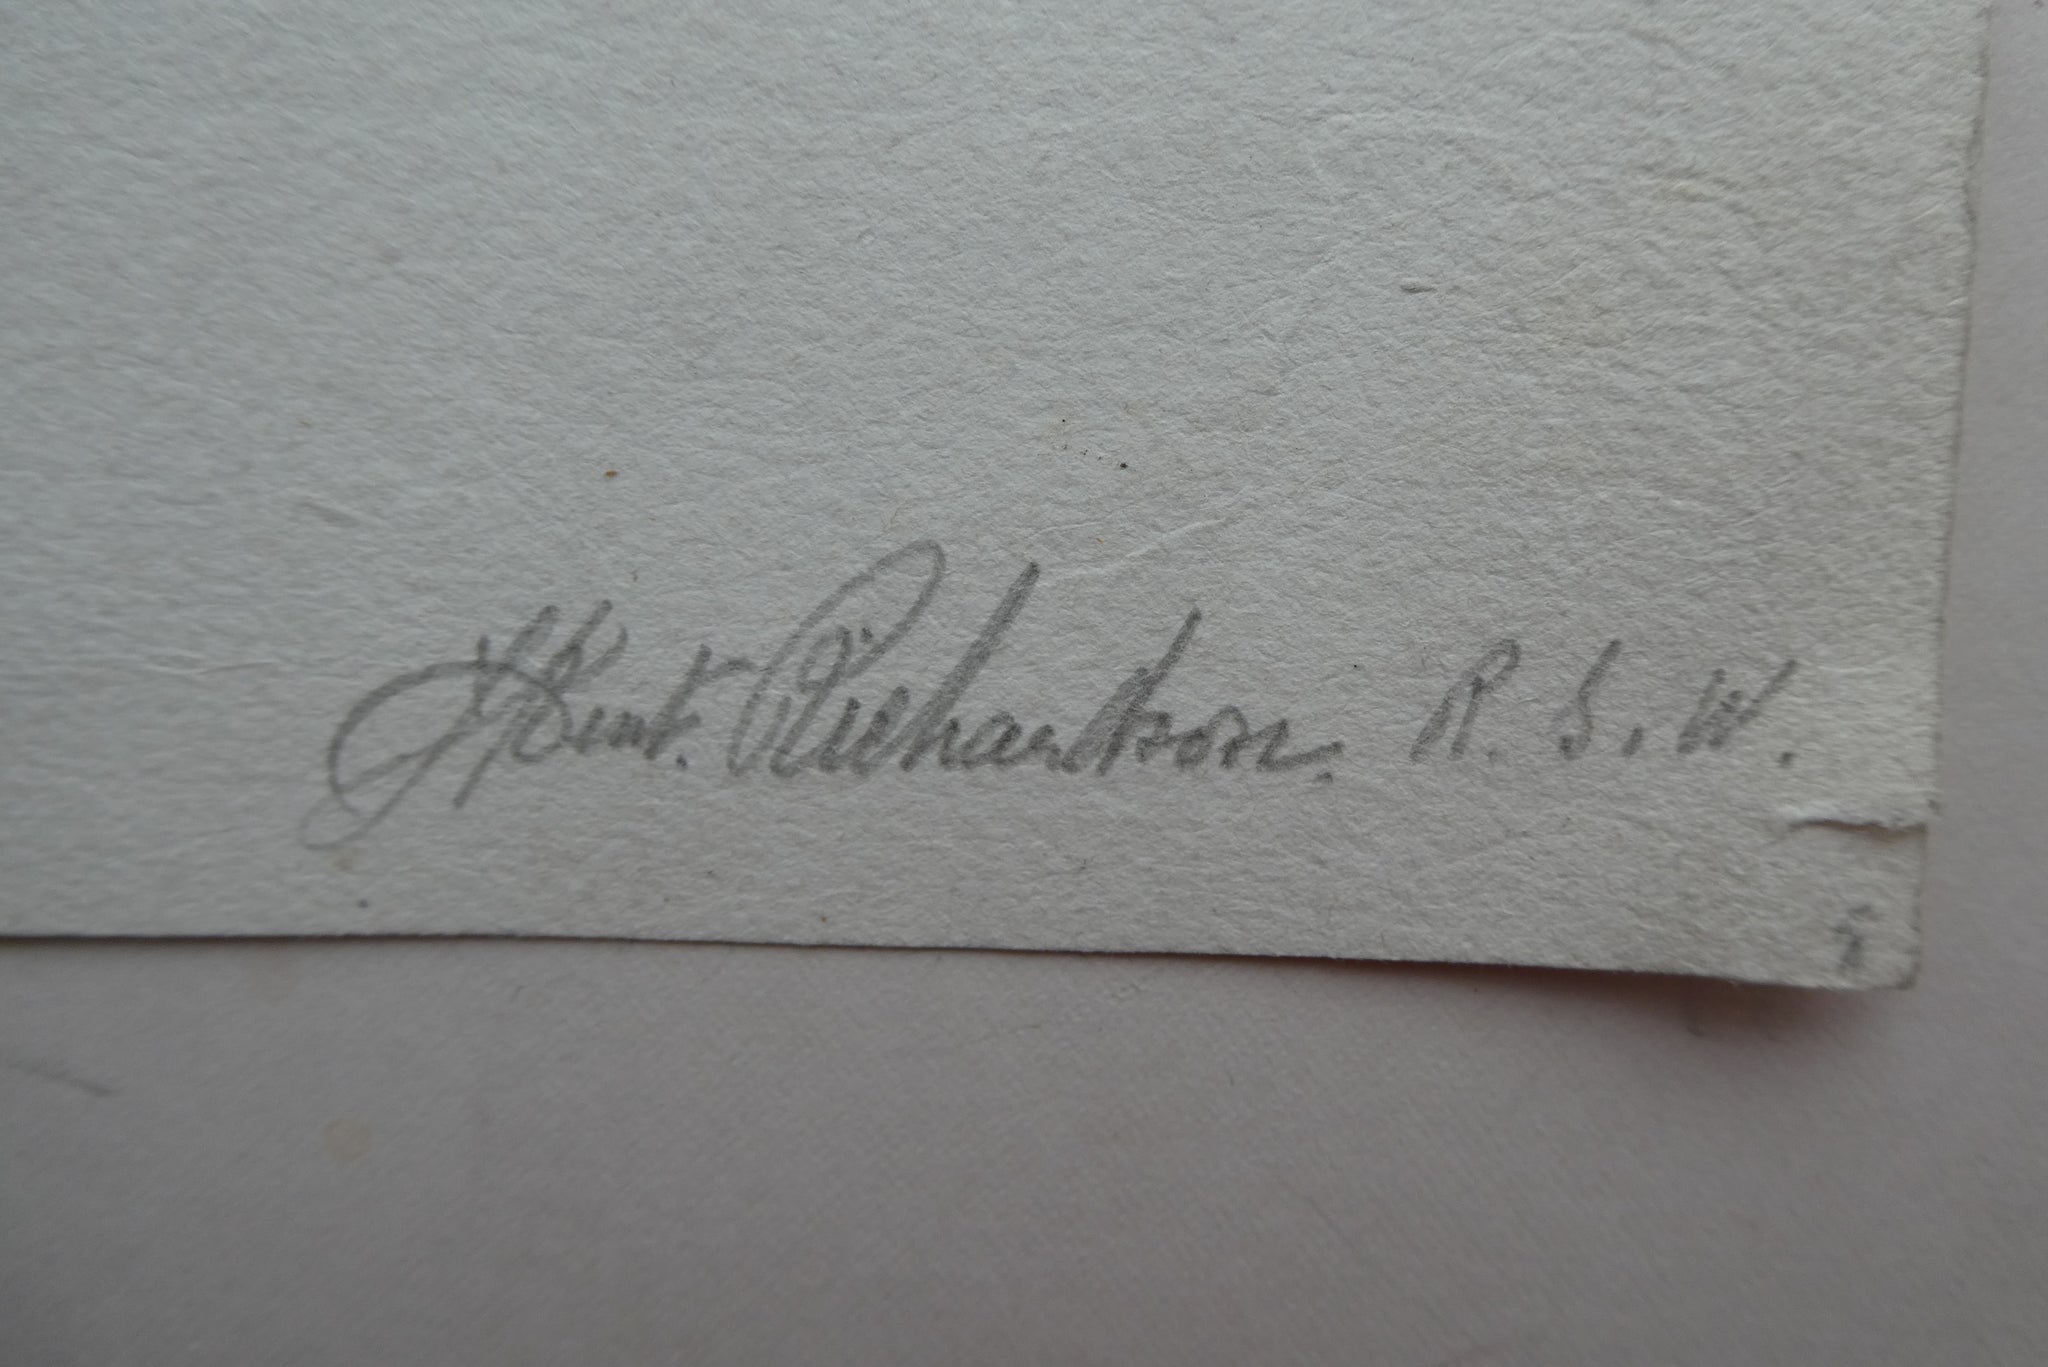 J. Kent. Richardson. R. S. W.